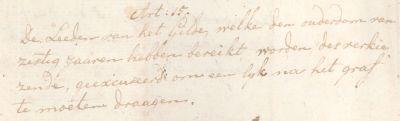 Art: 15.
De Leeden van het Gilde, welke den ouderdom van
zestig Jaaren hebben bereikt worden des verkie-
zende, geexcuseerd om een lyk na het graf
te moeten draagen.